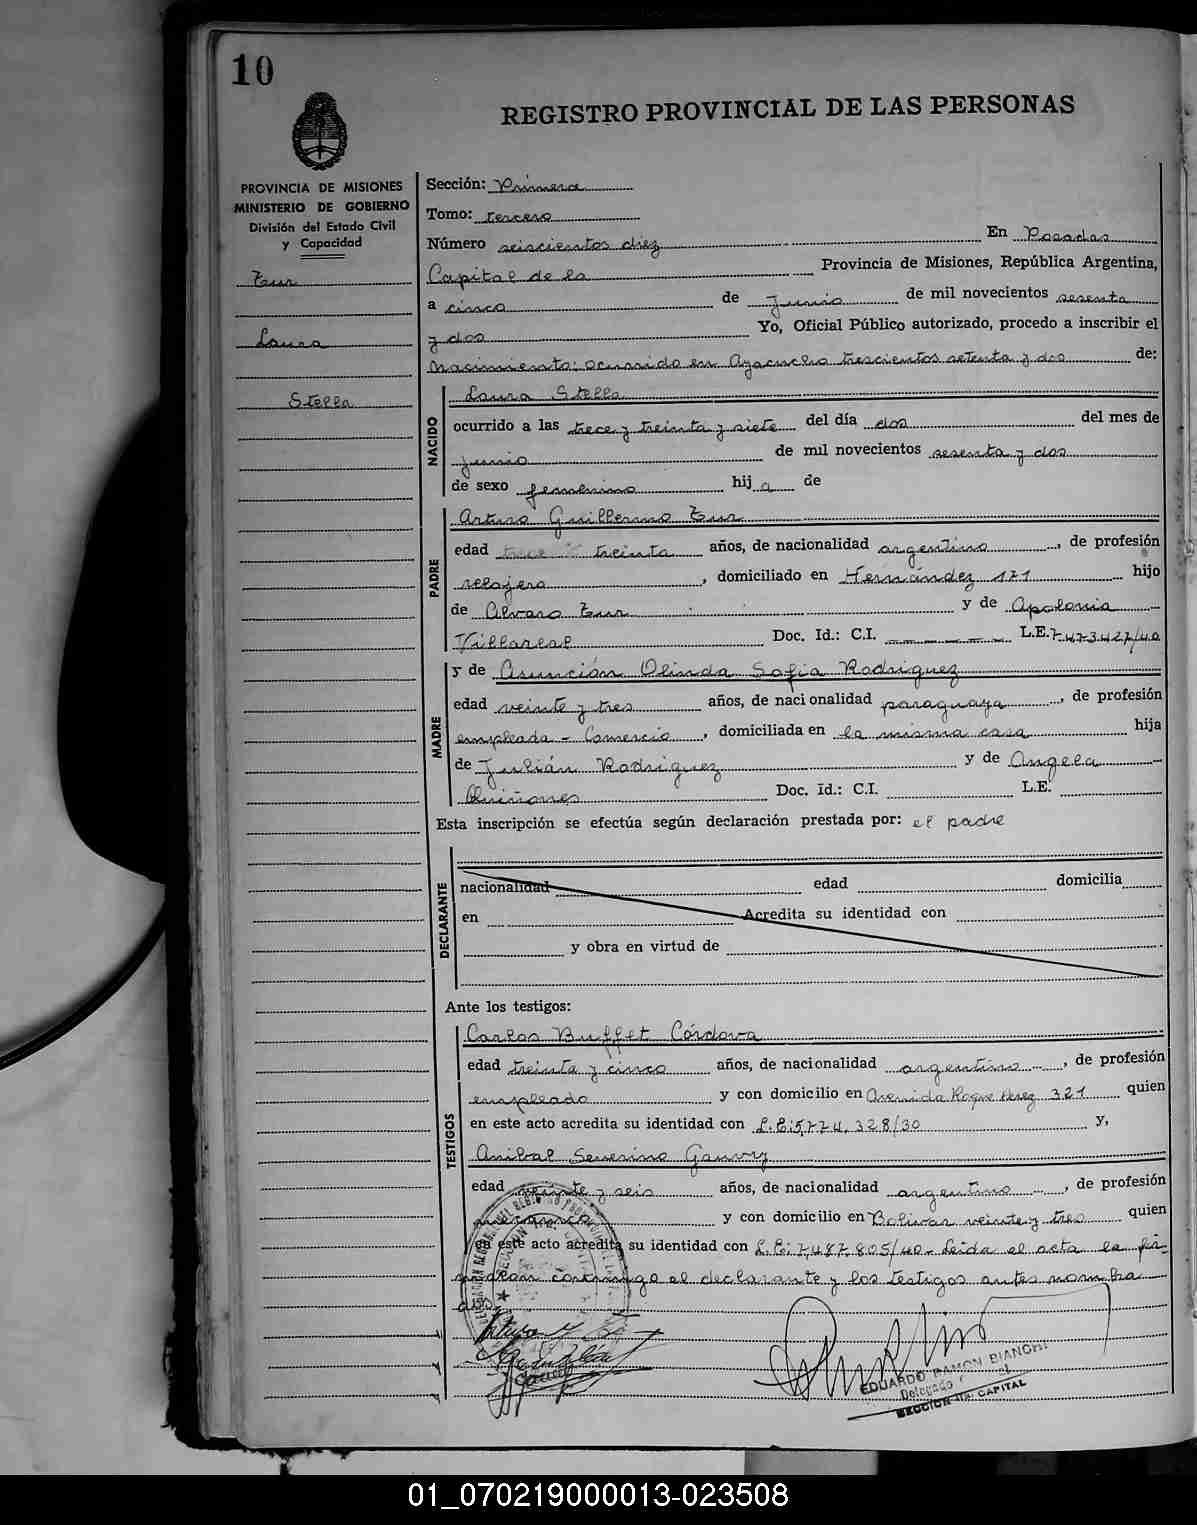 10
REGISTRO PROVINCIAL DE LAS PERSONAS
PROVINCIA DE MISIONES
MINISTERIO DE GOBIERNO
División del Estado Civil
y Capacidad
Tur
Laura
Stella
Sección: Primera
Tomo: tercero
Número seiscientos diez En Posadas
Capital de la Provincia de Misiones, República Argentina,
a cinco de Junio de mil novecientos sesenta
y dos Yo, Oficial Público autorizado, procedo a inscribir el
Nacimiento: ocurrido en Ayacucho trescientos setenta y dos de:
NACIDO
Laura Stella
ocurrido a las trece y treinta y siete del día dos del mes de
junio de mil novecientos sesenta y dos
de sexo femenino hij a de
PADRE
Arturo Guillermo Tur
edad treinta años, de nacionalidad argentino, de profesión
relojero, domiciliado en Hernández 171 hijo
de Alvaro Tur y de Apolonia
Villareal Doc. Id.: C.I. L.E. 7.473.427/40
MADRE
y de Asunción Olinda Sofia Rodriguez
edad veinte y tres años, de nacionalidad paraguaya, de profesión
empleada - Comercio, domiciliada en la misma casa hija
de Julián Rodriguez y de Angela
Quiñones Doc. Id.: C.I. L.E.
Esta inscripción se efectúa según declaración prestada por: el padre
DECLARANTE
nacionalidad edad domicilia
en Acredita su identidad con
y obra en virtud de
Ante los testigos:
TESTIGOS
Carlos Buffet Córdova
edad treinta y cinco años, de nacionalidad argentino, de profesión
empleado y con domicilio en Avenida Roque Perez 321 quien
en este acto acredita su identidad con L.E: 5.774.328/30 y,
Anibal Severino Gauvry
edad veinte y seis años, de nacionalidad argentino, de profesión
y con domicilio en Bolivar veinte y tres quien
en este acto acredita su identidad con L.E: 7.487.805/40 - Leida el acta la fir-
maron conmigo el declarante y los testigos antes nombra
dos
EDUARDO RAMON BIANCHI
Delegado
SECCION 1ra. CAPITAL
01_070219000013-023508